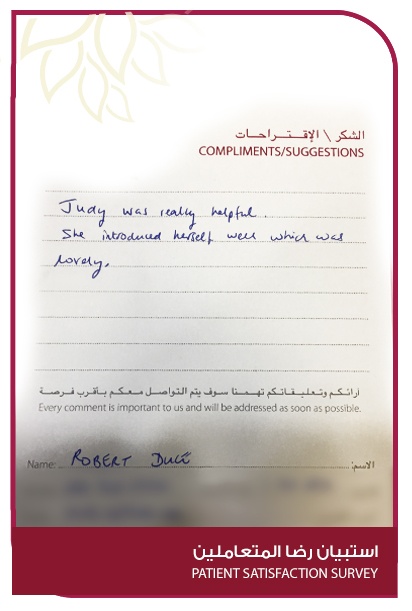 الشكر \ الإقتراحات
COMPLIMENTS/SUGGESTIONS
Judy was really helpful.
She introduced herself well which was
lovely.
أرائكم وتعليقاتكم تهمنا سوف يتم التواصل معكم بأقرب فرصة
Every comment is important to us and will be addressed as soon as possible.
Name: ROBERT DUCE الاسم:
استبيان رضا المتعاملين
PATIENT SATISFACTION SURVEY